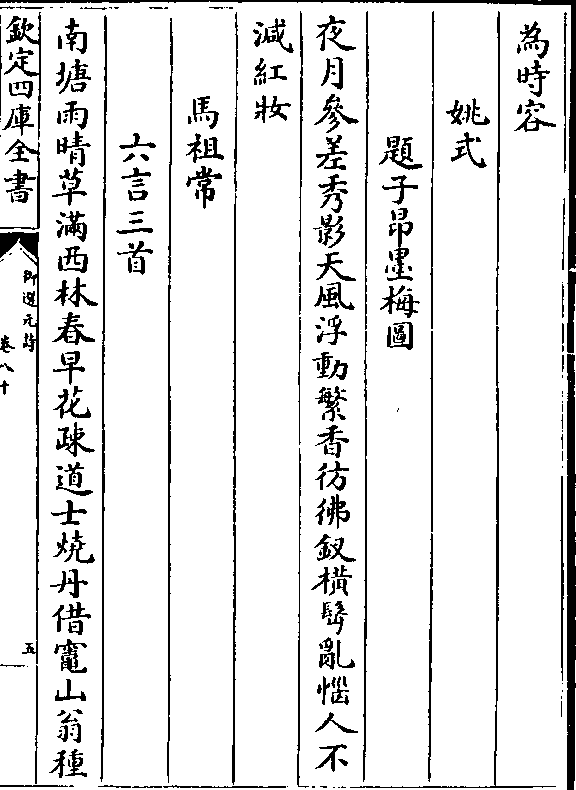 為時容
姚式
題子昂墨梅圖
夜月參差秀影天風浮動繁香彷彿釵橫髩亂惱人不
減紅妝
馬祖常
六言三首
南塘雨晴草滿西林春早花疎道士燒丹借竈山翁種
欽定四庫全書
御選元詩
卷八十
五